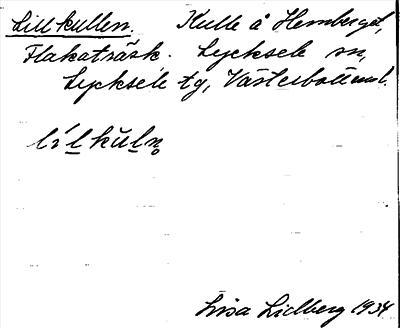 Lillkullen. Kulle å Hemberget,
Flakaträsk. Lycksele sn,
Lycksele tg, Västerbottens l.
Lisa Lidberg 1934